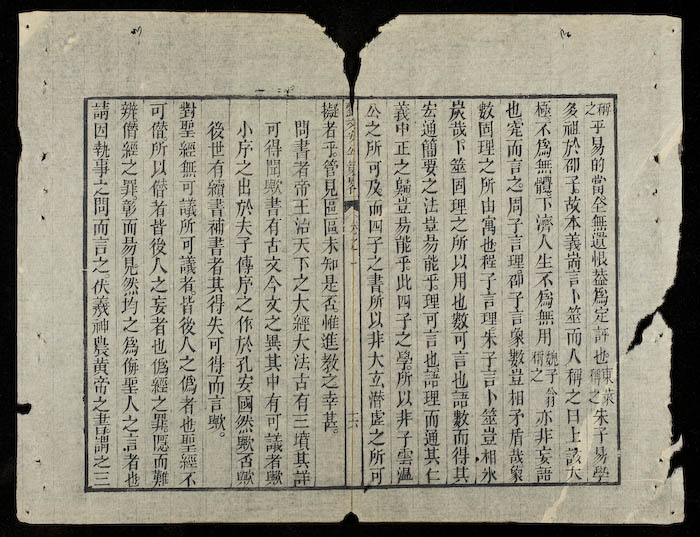 稱之平易的當全無遺恨葢為定評也東萊稱之朱子易學
多祖於邵子故本義耑言卜筮而人稱之曰上該太
極不為無體下濟人生不為無用魏子翁稱之亦非妄語
也定而言之周子言理邵子言象數豈相矛盾哉象
數固理之所由寓也程子言理朱子言卜筮豈相氷
炭哉卜筮固理之所以用也數可言也語數而得其
宏通簡要之法豈易能乎理可言也語理而通其仁
義中正之歸豈易能乎此四子之學所以非子雲溫
公之所可及而四子之書所以非大立潛虛之所可
擬者乎管見區區未知是否惟進教之幸甚
問書者帝王治天下之大經大法古有三墳其詳
可得聞歟書有古文今文之異其中有可議者歟
小序之出於夫子傳序之作於孔安國然歟否歟
後世有續書補書者其得失可得而言歟
對聖經無可議所可議者皆後人之偽者也聖經不
可僭所以僭者皆後人之妄者也偽經之罪隱而難
辨僭經之罪彰而易見然均之為侮聖人之言者也
請因執事之問而言之伏羲神農黃帝之書謂之三